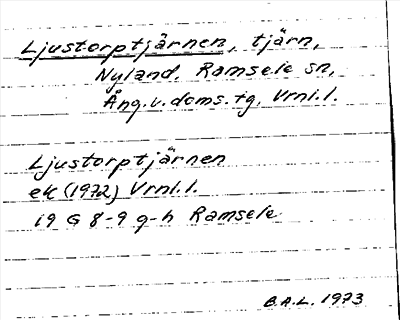 Ljustorptjärnen, tjärn,
Nyland, Ramsele sn,
Ång.v.doms.tg, Vrnl.l.
Ljustorptjärnen
ek (1972) Vrnl.l.
19 G 8-9 g-h Ramsele
B.A.L. 1973